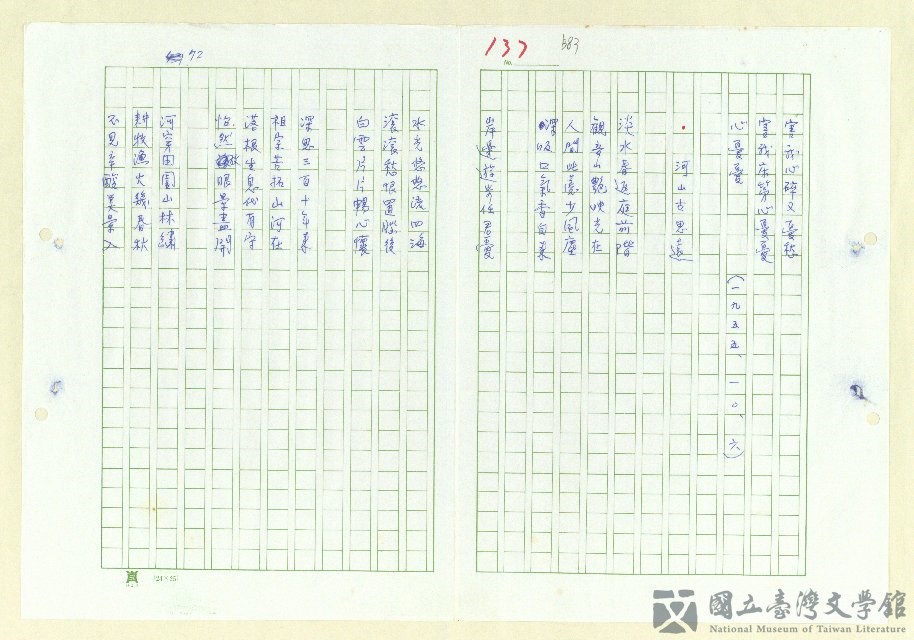 137
583
No.
害我心碎又憂愁
害我床第心憂憂
心憂憂
(一九五五、一〇、六)
河山古思遠
淡水春進庭前階
觀音山艷映光在
人間此處少風塵
深吸口氣香自來
岸邊
72
水光悠悠流四海
滾滾愁恨置腦後
白雲片片暢心懷
深思三百十年來
祖宗苦拓山河在
落根生息代有宗
怡然 眼景盡開
河岸田園山林繡
耕牧漁火幾春秋
不見辛酸美景入
(24×25)
國立臺灣文學館
National Museum of Taiwan Literature